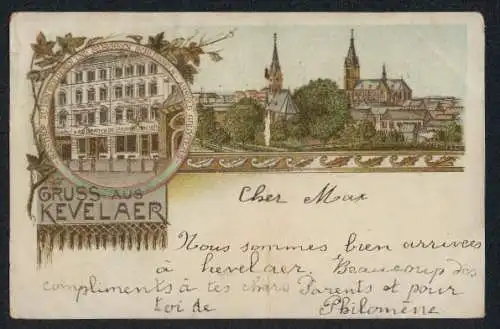 GRUSS AUS
KEVELAER
Cher Max
Nous sommes bien arrivées
à kevelaer. Beaucoup des
compliments à tes chère Parents et pour
toi de Philomène